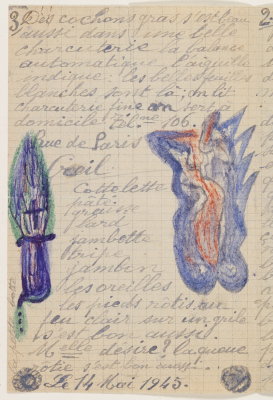 3. Des cochons gras, s'est beau
aussi dans une belle
charcuterie la balance
automatique l'aiguille
indique: les belles feuilles
blanches sont là; on lit
charcuterie fine on sert à
domicile Tel. 106.
Rue de Paris
Cottolette
pâté.
lard
jambette
tripe.
jambon
les oreilles
les pieds rôtis au
feu clair sur un grile
s'est bon aussi.
M elle désire? la queue
rotie s'est bon aussi.
Le 14 Mai 1945.
2